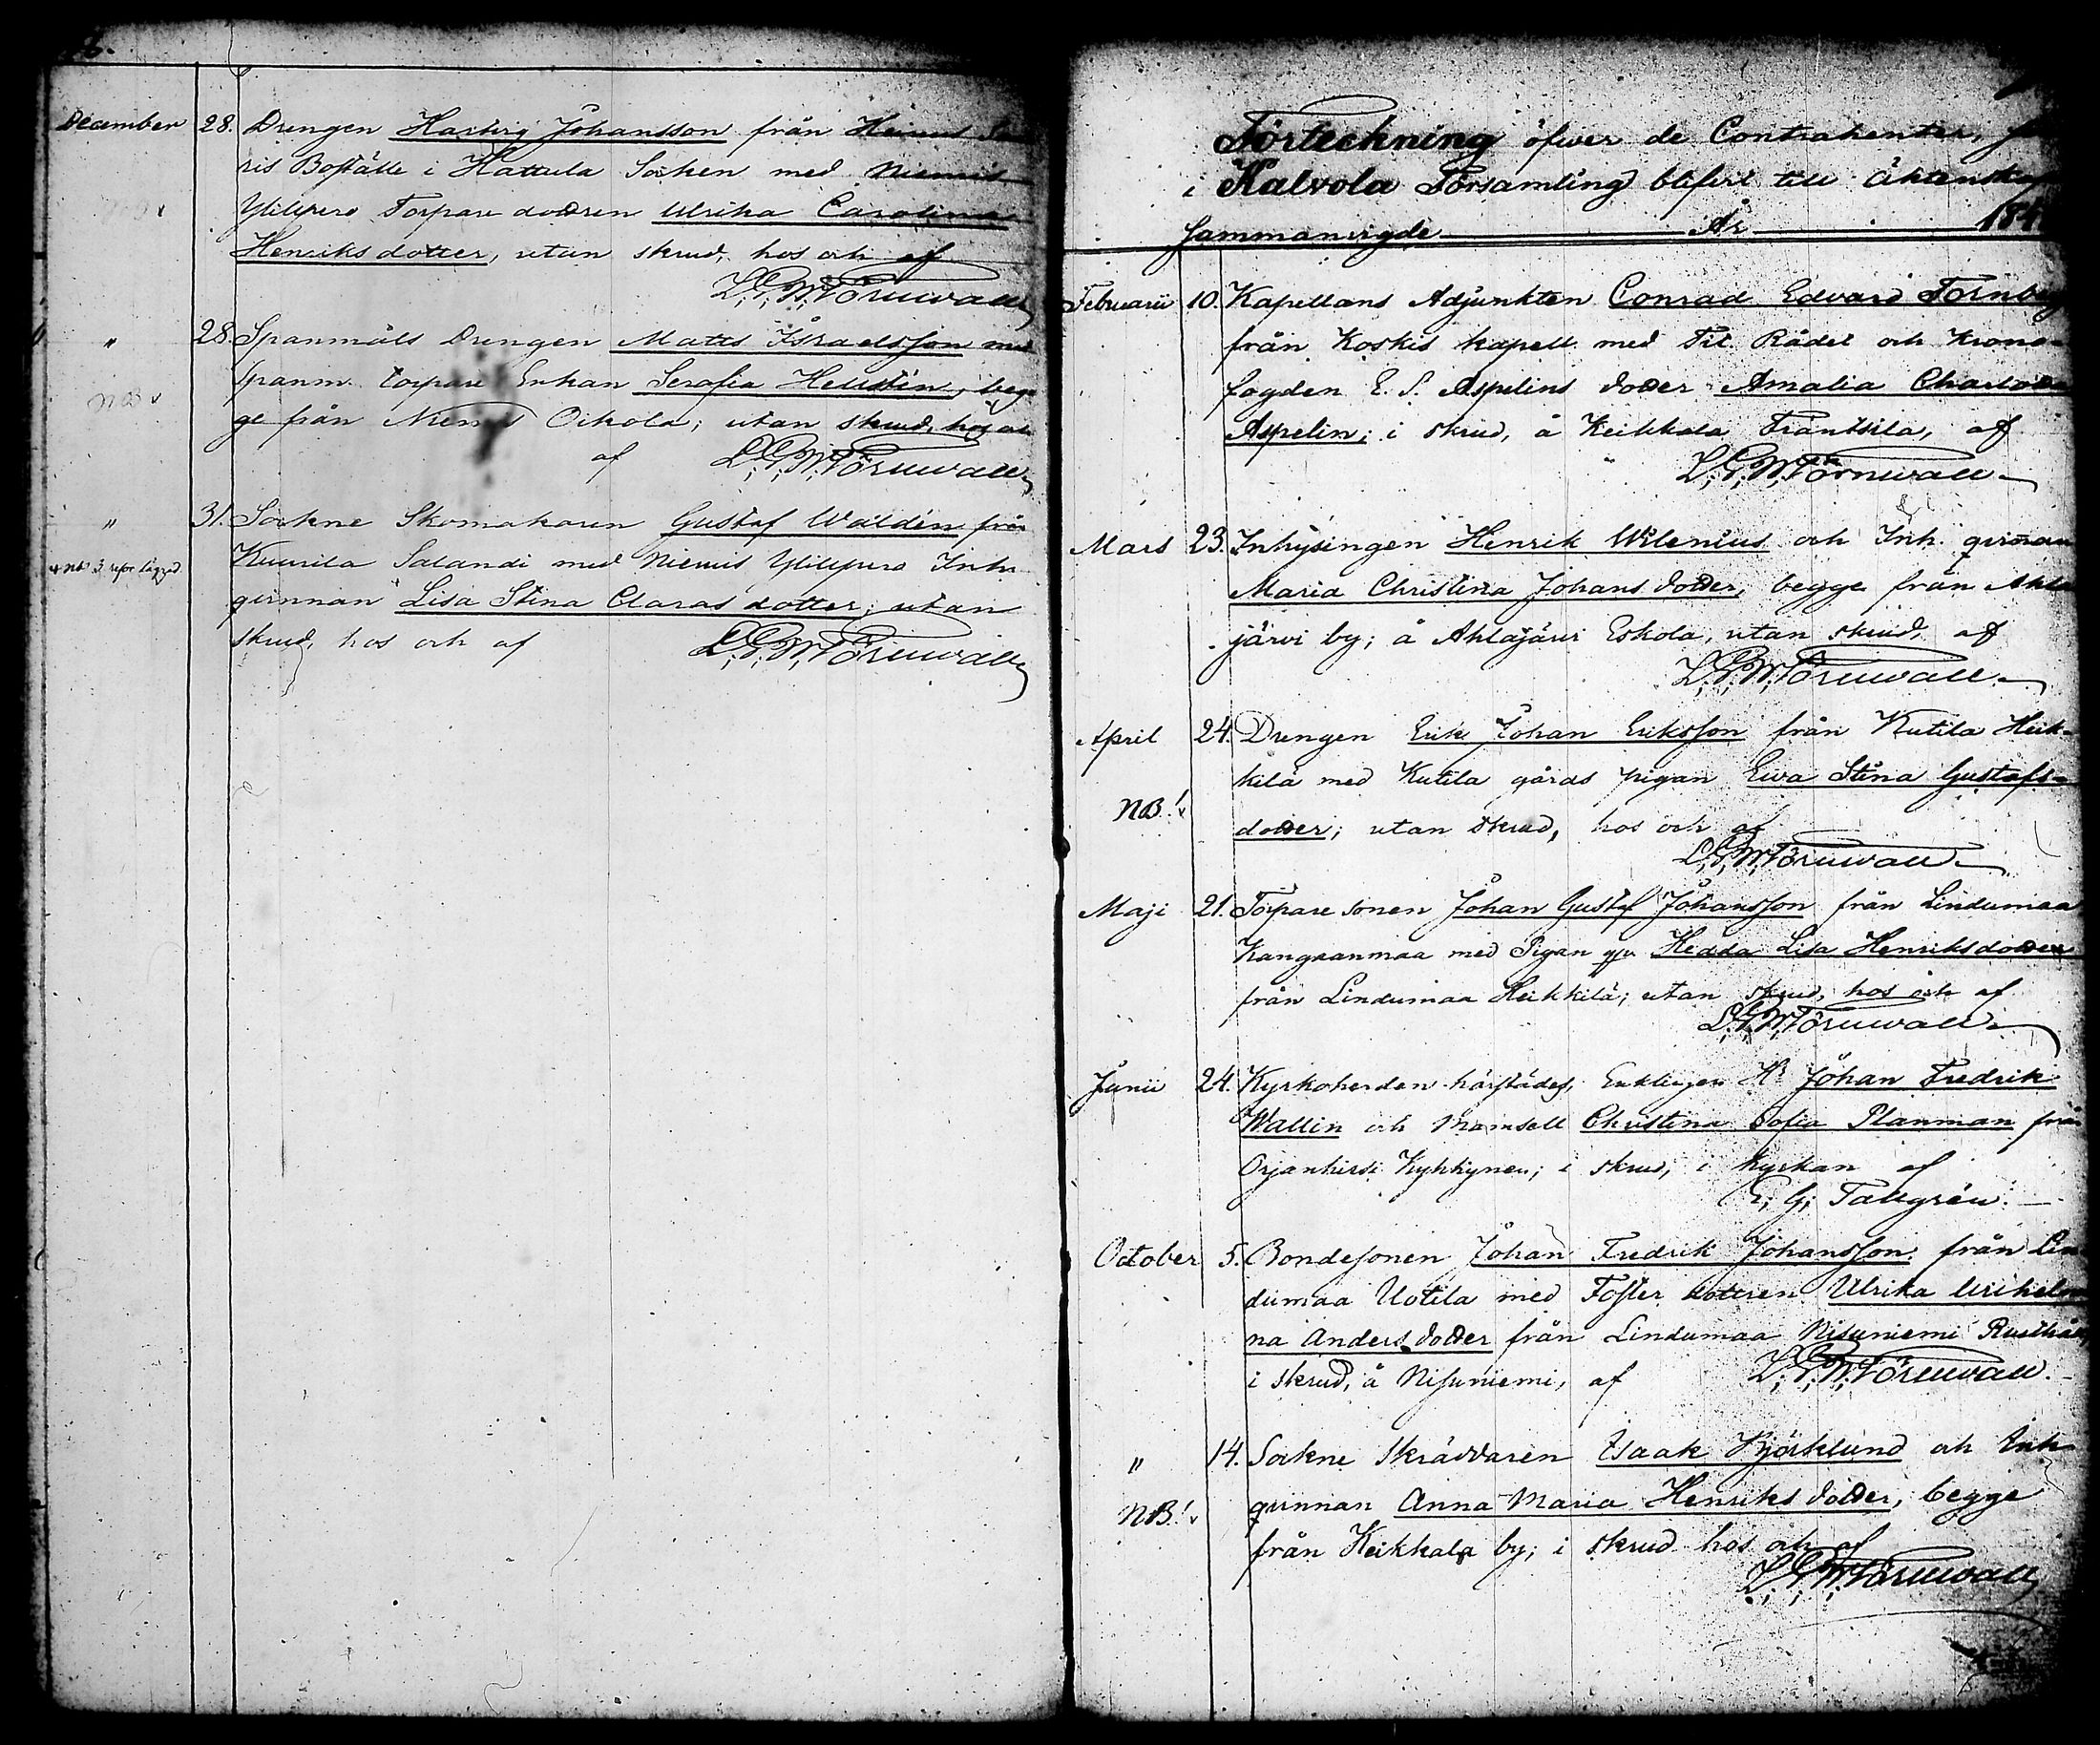 December 28. Drengen Hartvig Johansson från
ris Boställe i Hattula Socken med Niemis
Ylilepro Torpare dottren Ulrika Carolina
Henriksdotter, utan skrud, hos och af
L. G. W. Törnwall
" 28. Spanmåls Drengen Matts Israelsson med
NB
Spanm. torpare Enkan Serafia Hellstén, beg
ge från Niemis Oikola; utan skrud, hos och
af L. G. W. Törnwall
" 31. Sockne Skomakaren Gustaf Waldén från
Kuurila Salandi med Niemis Ylilepro Inh.
qvinnan Lisa Stina Clarasdotter; utan
skrud, hos och af L. G. W. Törnwall
Förteckning öfwer de Contrahenter,
i Kalvola Församling blifvit till Äktenskap
sammanvigde År 184
Februarii 10. Kapellans Adjunkten Conrad Edvard Tornberg
från Koskis kapell med Tit. Rådet och Krono-
fogden E. S. Aspelins dotter Amalia Charlotta
Aspelin; i skrud, å Keikkala Frantsila, af
L. G. W. Törnwall
Mars 23. Inhysingen Henrik Wilenius och Inh. qvinnan
Maria Christina Johansdotter, begge från Ahla
järvi by; å Ahlajärvi Eskola, utan skrud, af
L. G. W. Törnwall
April 24. Drengen Erik Johan Eriksson från Kutila Heik-
kilä med Kutila gårds pigan Ewa Stina Gustafs-
NB!
dotter; utan skrud, hos och af
L. G. W. Törnwall
Maji 21. Torpare sonen Johan Gustaf Johansson från Lindumaa
Kangaanmaa med Pigan Hedda Lisa Henriksdotter
från Lindumaa Heikkilä; utan skrud, hos och af
L. G. W. Törnwall
Junii 24. Kyrkoherden härstädes, Enklingen Hr Johan Fredrik
Wallin och Mamsell Christina Sofia Planman från
Orjanhirsi Kyhkynen; i skrud, i kyrkan af
E. G. Tallgrén.
October 5. Bondesonen Johan Fredrik Johansson från Lin
dumaa Uotila med Foster dottren Ulrika Wilhelmi
na Andersdotter från Lindumaa Nisuniemi Rusthåll,
i skrud, å Nisuniemi, af L. G. W. Törnwall.
" 14. Sockne Skräddaren Isaak Björklund och Inh
NB!
qvinnan Anna Maria Henriksdotter, begge
från Keikkala by; i skrud hos och af
L. G. W. Törnwall